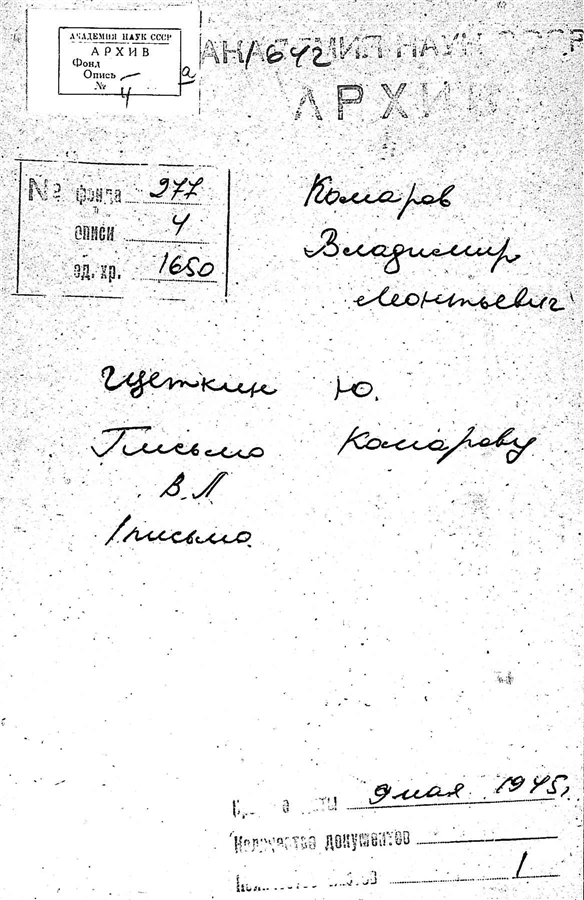 АКАДЕМИЯ НАУК СССР
АРХИВ
Фонд
Опись
№ 4
а
1642
АКАДЕМИЯ НАУК СССР
АРХИВ
№ фонда 277
описи 4
ед. хр. 1650
Комаров
Владимир
Леонтьевич
Щеткин Ю.
Письмо Комарову
В.Л
1 письмо.
даты 9 мая 1945г.
Количество документов
Количество листов 1